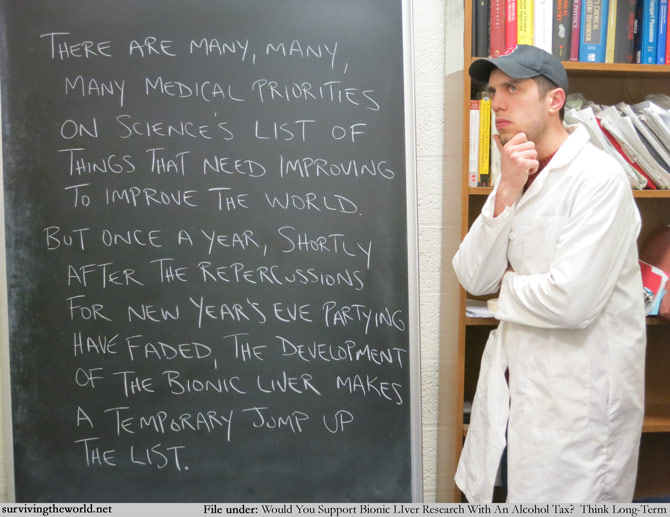 There are many, many,
many medical priorities
on Science's list of
things that need improving
to improve the world.
But once a year, shortly
after the repercussions
for New Year's Eve partying
have faded, the development
of the bionic liver makes
a temporary jump up
the list.
survivingtheworld.net
File under: Would You Support Bionic LIver Research With An Alcohol Tax? Think Long-Term